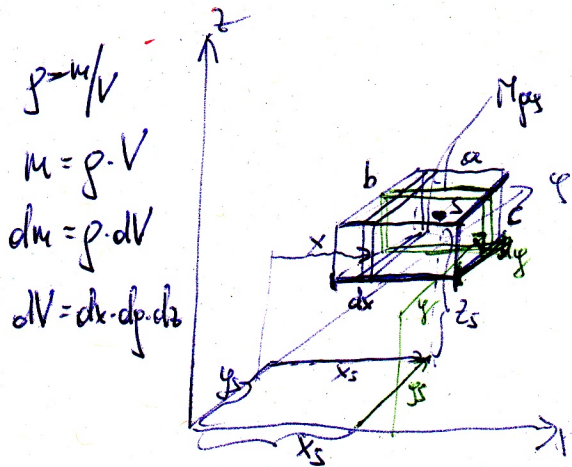 z
ρ = m/V
m = ρ·V
dm = ρ·dV
dV = dx·dy·dz
a
b
S
x
dx
dy
y
z_s
y_s
x_s
y_s
x_s